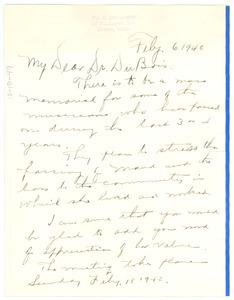 Feby. 6 1940
My Dear Dr. Du Bois.
There is to be a mass
memorial for some of the
musicians who have passed
on during the last 3 or 4
years.
They plan to stress the
passing of Maud and the
loss to the community in
which she lived and worked.
I am sure that you would
be glad to add your word
of appreciation of her value.
The meeting takes place
Sunday Feby. 18 1940.